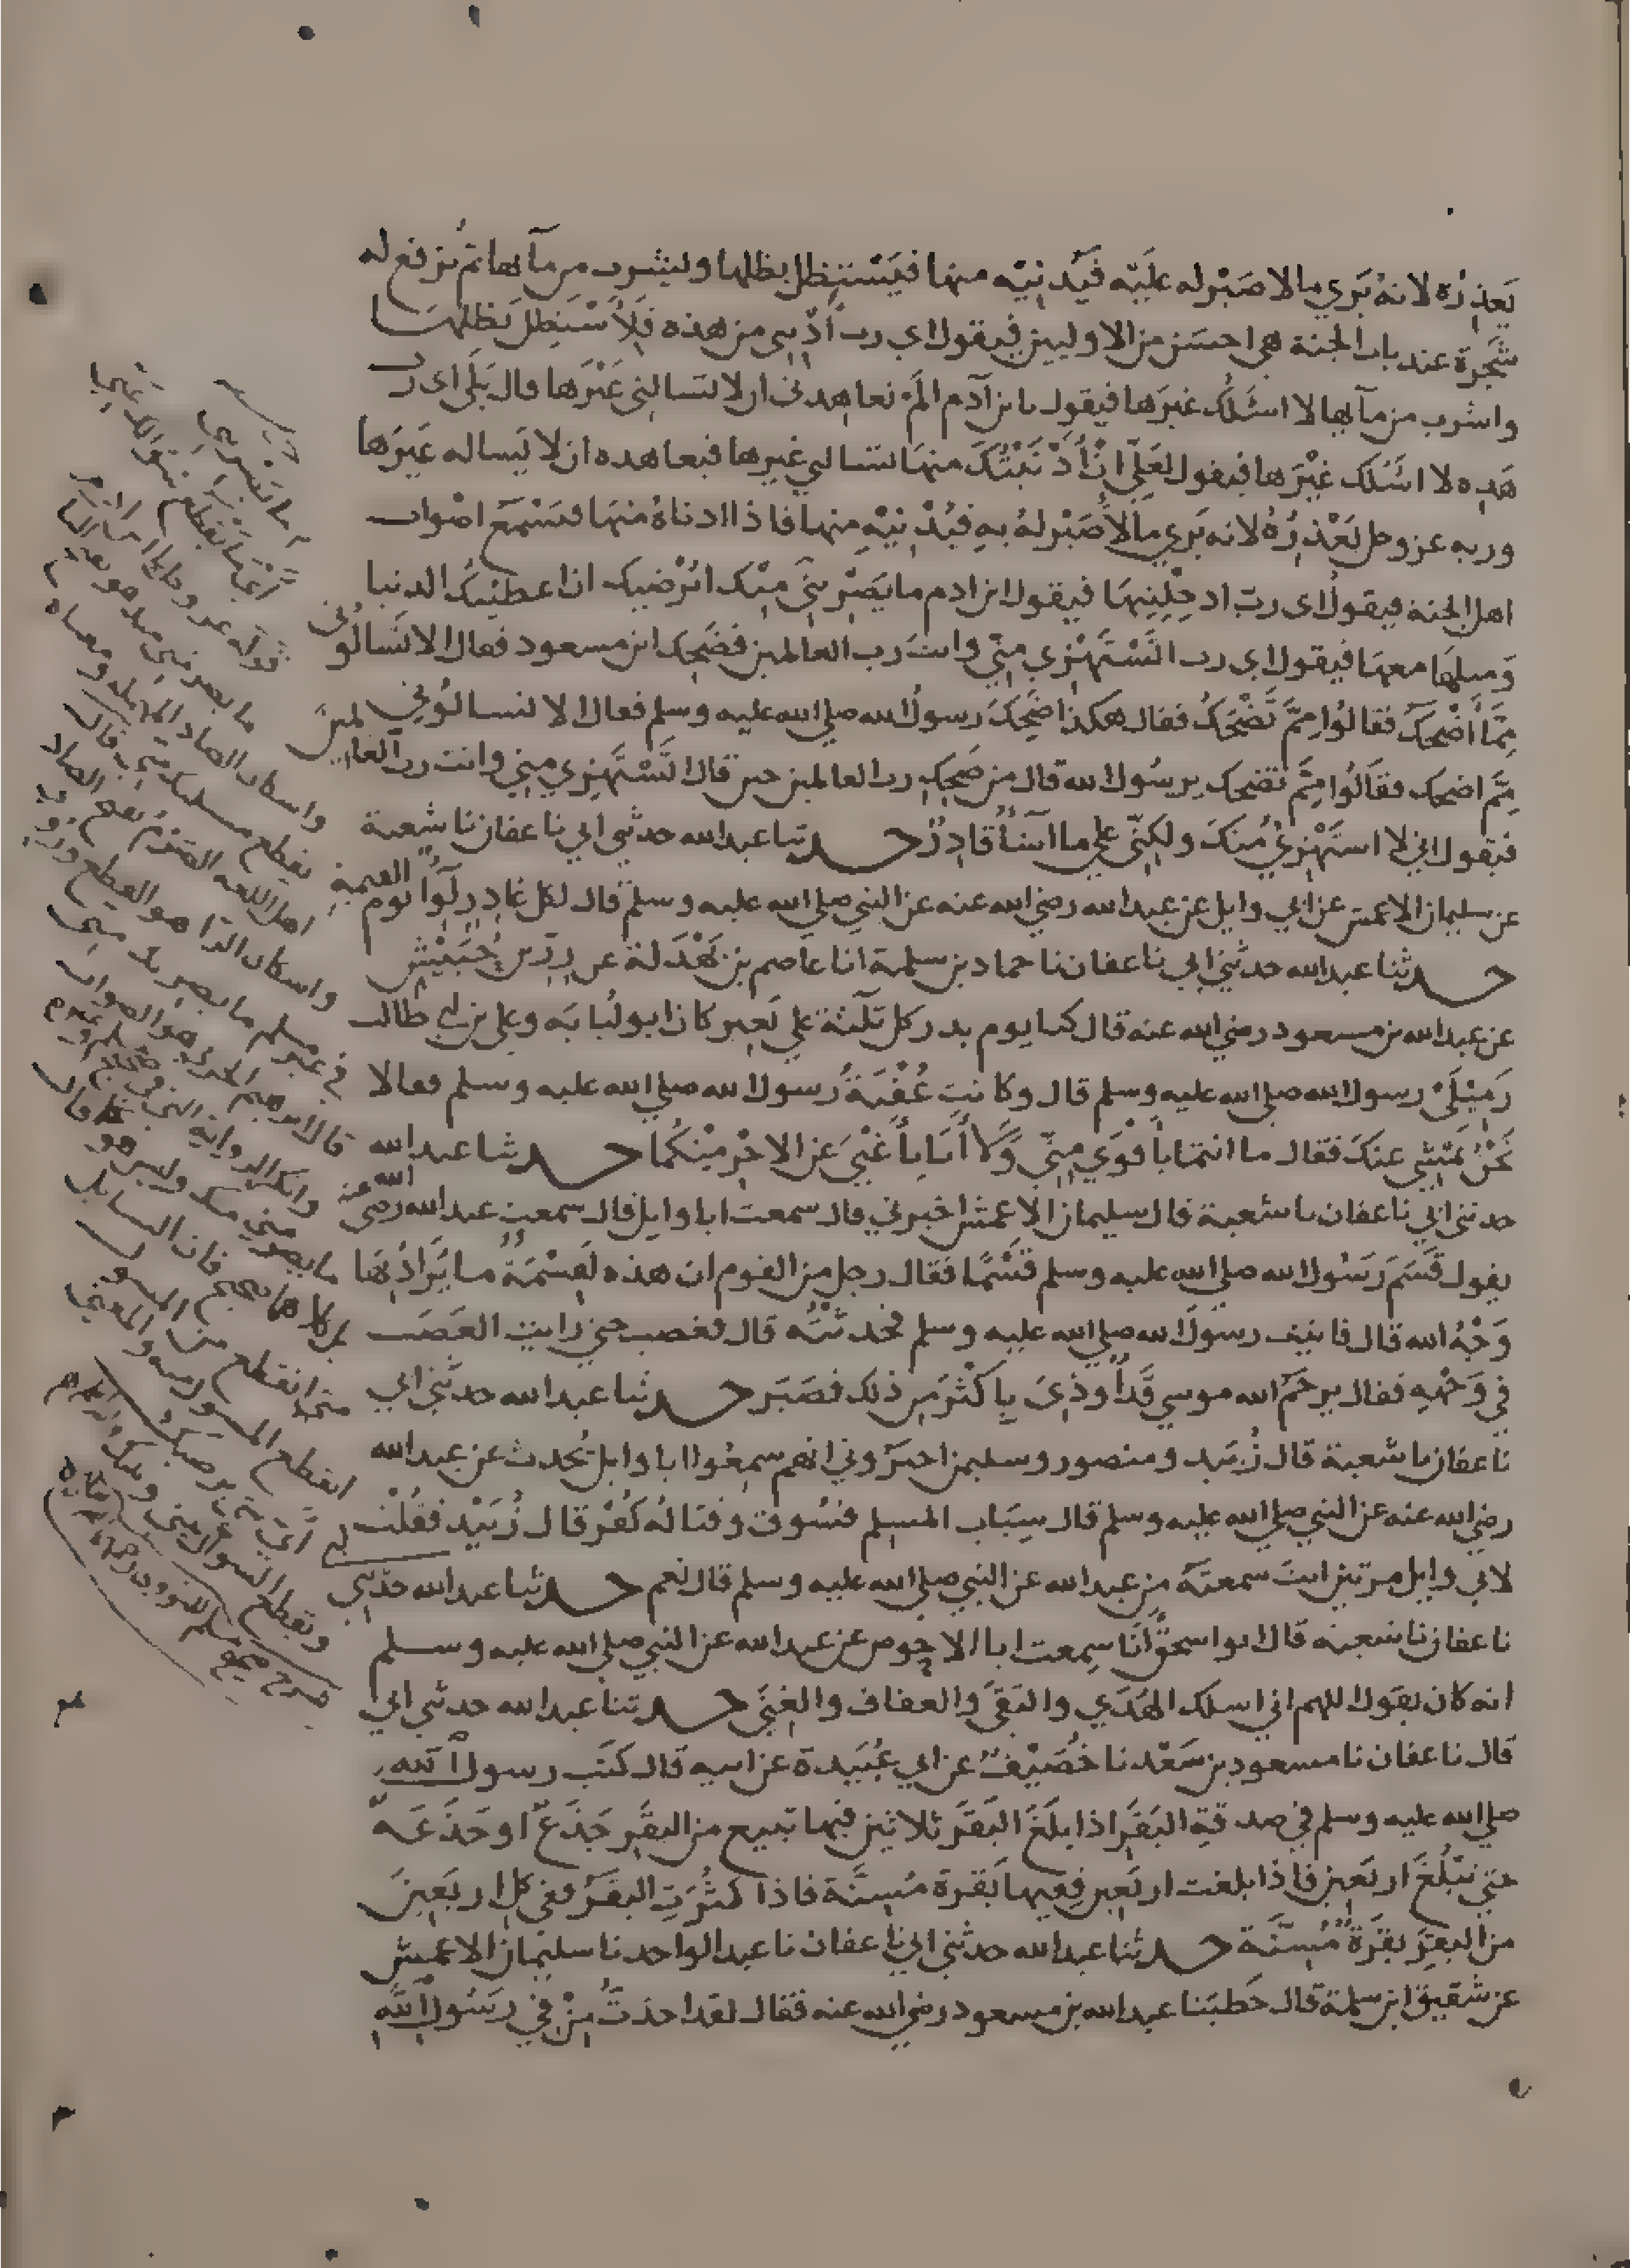 يعذره لانه يري ما لا صبر له عليه فيدنيه منها فيستظل بظلها وليشرب من مآىها ثم ترفع له
شجرة عند باب الجنة هي احسن من الاوليين فيقول اي رب ادنني من هذه فلأستظل بظلها
واشرب من مآىها لا اسئلك غيرها فيقول يا بن آدم الم تعاهدني ان لا تسالني غيرها قال بلى اى رب
هذه لا اسئلك غيرها فيقول لعلي ان أدنيتك منها تسالني غيرها فيعاهده ان لا يساله غيرها
وربه عز وجل يعذره لانه يري ما لا صبر له به فيدنيه منها فاذا ادناه منها فيسمع اصوات
اهل الجنة فيقول اى رب ادخلنيها فيقول ابن ادم ما يصريني منك اترضيك ان اعطيتك الدنيا
ومثلها معها فيقول اى رب اتستهزي مني وانت رب العالمين فضحك ابن مسعود فقال الا تسالوني
مما أضحك فقالوا مم تضحك فقال هكذا ضحك رسول الله صلى الله عليه وسلم فقال الا تسالوني
مم اضحك فقالوا مم تضحك يرسول الله قال من ضحك رب العالمين حين قال اتستهزي مني وانت رب العالمين
فيقول اني لا استهزئ منك ولكني علي ما اشأ قادر حدثنا عبد الله حدثني ابي نا عفان نا شعبة
عن سليمان الاعمش عن ابي وايل عن عبد الله رضي الله عنه عن النبي صلي الله عليه وسلم قال لكل غادر لوآ يوم القيمة
حدثنا عبد الله حدثني ابي نا عفان نا حماد بن سلمة انا عاصم بن بهدلة عن زر بن حبيش
عن عبد الله بن مسعود رضي الله عنه قال كنا يوم بدر كل ثلثة علي بعير كان ابو لبابه وعلي بن ابي طالب
زميلي رسول الله صلى الله عليه وسلم قال وكانت عقبة رسول الله صلي الله عليه وسلم فقالا
نحن نمشي عنك فقال ما انتما باقوي مني ولا أنا باغني عن الاجر منكما حدثنا عبد الله
حدثني ابي نا عفان نا شعبة قال سليمان الاعمش اخبرني قال سمعت ابا وايل قال سمعت عبد الله رضي الله عنه
يقول قسم رسول الله صلي الله عليه وسلم قسما فقال رجل من القوم ان هذه لقسمة ما يراد بها
وجه الله قال فاتيت رسول الله صلي الله عليه وسلم فحدثته قال فغضب حتي رايت الغضب
في وجهه فقال يرحم الله موسي قد أوذي باكثر من ذلك فصبر حدثنا عبد الله حدثني ابي
نا عفان نا شعبة قال زبيد ومنصور وسليمن اخبروني انهم سمعوا ابا وايل يحدث عن عبد الله
رضي الله عنه عن النبي صلي الله عليه وسلم قال سباب المسلم فسوق وقتاله كفر قال زبيد فقلت
لابي وايل مرتين انت سمعته من عبد الله عن النبي صلي الله عليه وسلم قال نعم حدثنا عبد الله حدثني ابي
نا عفان نا شعبة قال ابو اسحق أنا سمعت ابا الاحوص عن عبد الله عن النبي صلي الله عليه وسلم
انه كان يقول اللهم اني اسلك الهدي والتقى والعفاف والغنى حدثنا عبد الله حدثني ابي
قال نا عفان نا مسعود بن سعد نا خصيف عن ابي عبيدة عن ابيه قال كتب رسول الله
صلي الله عليه وسلم في صدقة البقر اذا بلغ البقر ثلاثين فيها تبيع من البقر جذع او جذعة
حتي تبلغ اربعين فاذا بلغت اربعين ففيها بقرة مسنة فاذا كثرت البقر ففي كل اربعين
من البقر بقرة مسنة حدثنا عبد الله حدثني ابي نا عفان نا عبد الواحد نا سليمان الاعمش
عن شقيق ابن سلمة قال خطبنا عبد الله بن مسعود رضي الله عنه فقال لقد اخذت من في رسول الله
ما يصريني
أي ما يقطع سوالك عني
قوله عز وجل
ما يصريني منك هو بفتح اليا
واسكان الصاد المهمله ومعناه
يقطع مسلتك مني قال
اهل اللغه الصري بفتح الصاد
واسكان الرا هو القطع وروي
في غير مسلم ما يصريك مني
قال ابرهيم الحربي هو الصواب
وانكر الرواية التي في صحيح مسلم وغيره
ما يصريني منك وليس هو كما قال
بل كلاهما صحيح فان السايل
متى انقطع من المسول
انقطع المسول منه والمعني
أي شي يرضيك
ويقطع السوال بيني وبينك
شرح صحيح مسلم للنووي رحمه الله